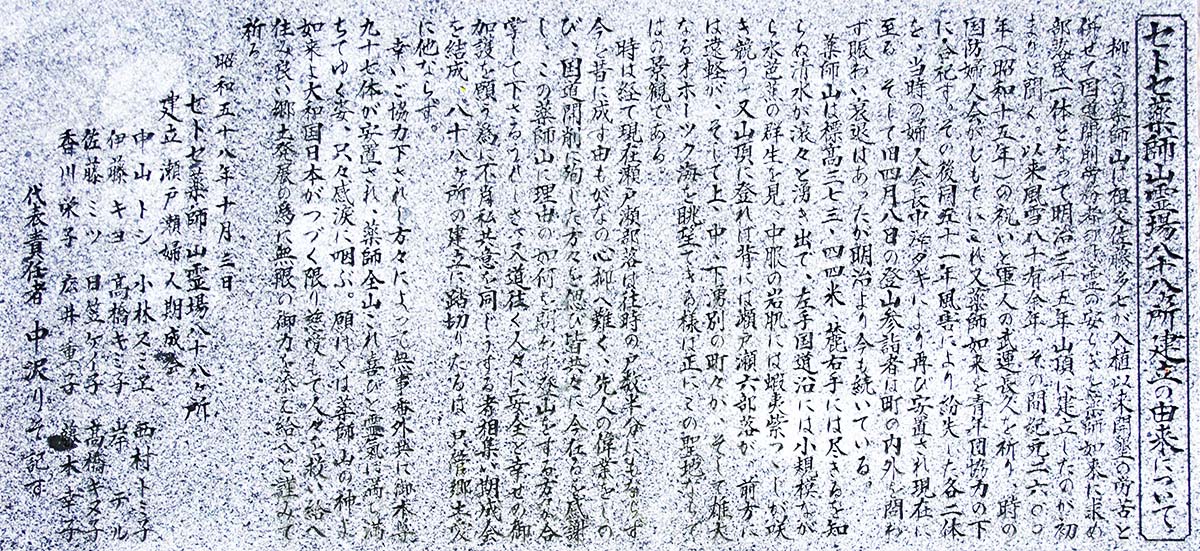 セトセ薬師山霊場八十八ヶ所建立の由来について
抑々この薬師山は祖父佐藤多七が入植以来開墾の労苦と
併せて国道開削労務者の 安らぎを薬師如来に求め
部落民一体となって明治三十五年山頂に建立したのが初
まりと聞く。以来風雪八十有余年、その間紀元二六〇〇
年（昭和十五年）の祝いと軍人の武運長久を祈り、時の
国防婦人会がしもでに 又薬師如来を青年団協力の下
に合祀す。その後同 十一年風害により紛失した各二体
を、当時の婦人会長中沢タキにより再び安置され現在に
至る。そして旧四月八日の登山参詣者は町の内外を問わ
ず賑わい衰退はあったが明治より今も続いている。
薬師山は標高三七三、四四米、麓右手には尽きるを知
らぬ清水が滾々と湧き出で、左手国道沿には小規模なが
ら水芭蕉の群生を見、中腹の岩肌には蝦夷紫つゝじが咲
き競う。又山頂に登れば背には瀬戸瀬六部落が、前方に
は遠軽が、そして上、中、下湧別の町々が、そして雄大
なるオホーツク海を眺望できる様は正にこの聖地ならで
はの景観である。
時は経て現在瀬戸瀬部落は往時の戸数半分にもならず
今を昔に成す由もがなの心抑へ難く、先人の偉業をしの
び、国道開削に殉した方々を偲び皆共々に今在るを感謝
し、この薬師山に理由の如何を問わず登山をする方々合
掌して下さるうれしさ、又道往く人々に安全と幸せの御
加護を願う為に不肖私共意を同じうする者相集い期成会
を結成、八十八ヶ所の建立に踏切りたるは、只管郷土愛
に他ならず。
幸いご協力下されし方々によって無事番外共に御本尊
九十七体が安置され、薬師全山これ喜びと霊気に満ち満
ちてゆく姿、只々感涙に咽ぶ。願はくは薬師山の神よ
如来よ大和国日本がつづく限り慈愛もて人々を救い給へ
住み良い郷土発展の為に無限の御力を添え給へと謹みて
祈る
昭和五十八年十月三日
セトセ薬師山霊場八十八ヶ所
建立 瀬戸瀬婦人期成会
中山トシ 小林スミ 西村トミ子
伊藤キヨ 高橋キミ子 岸 テル
佐藤ミツ 日笠ケイ子 高橋キヌ子
香川栄子 桜井重子 藤木幸子
代表責任者 中沢りそ記す